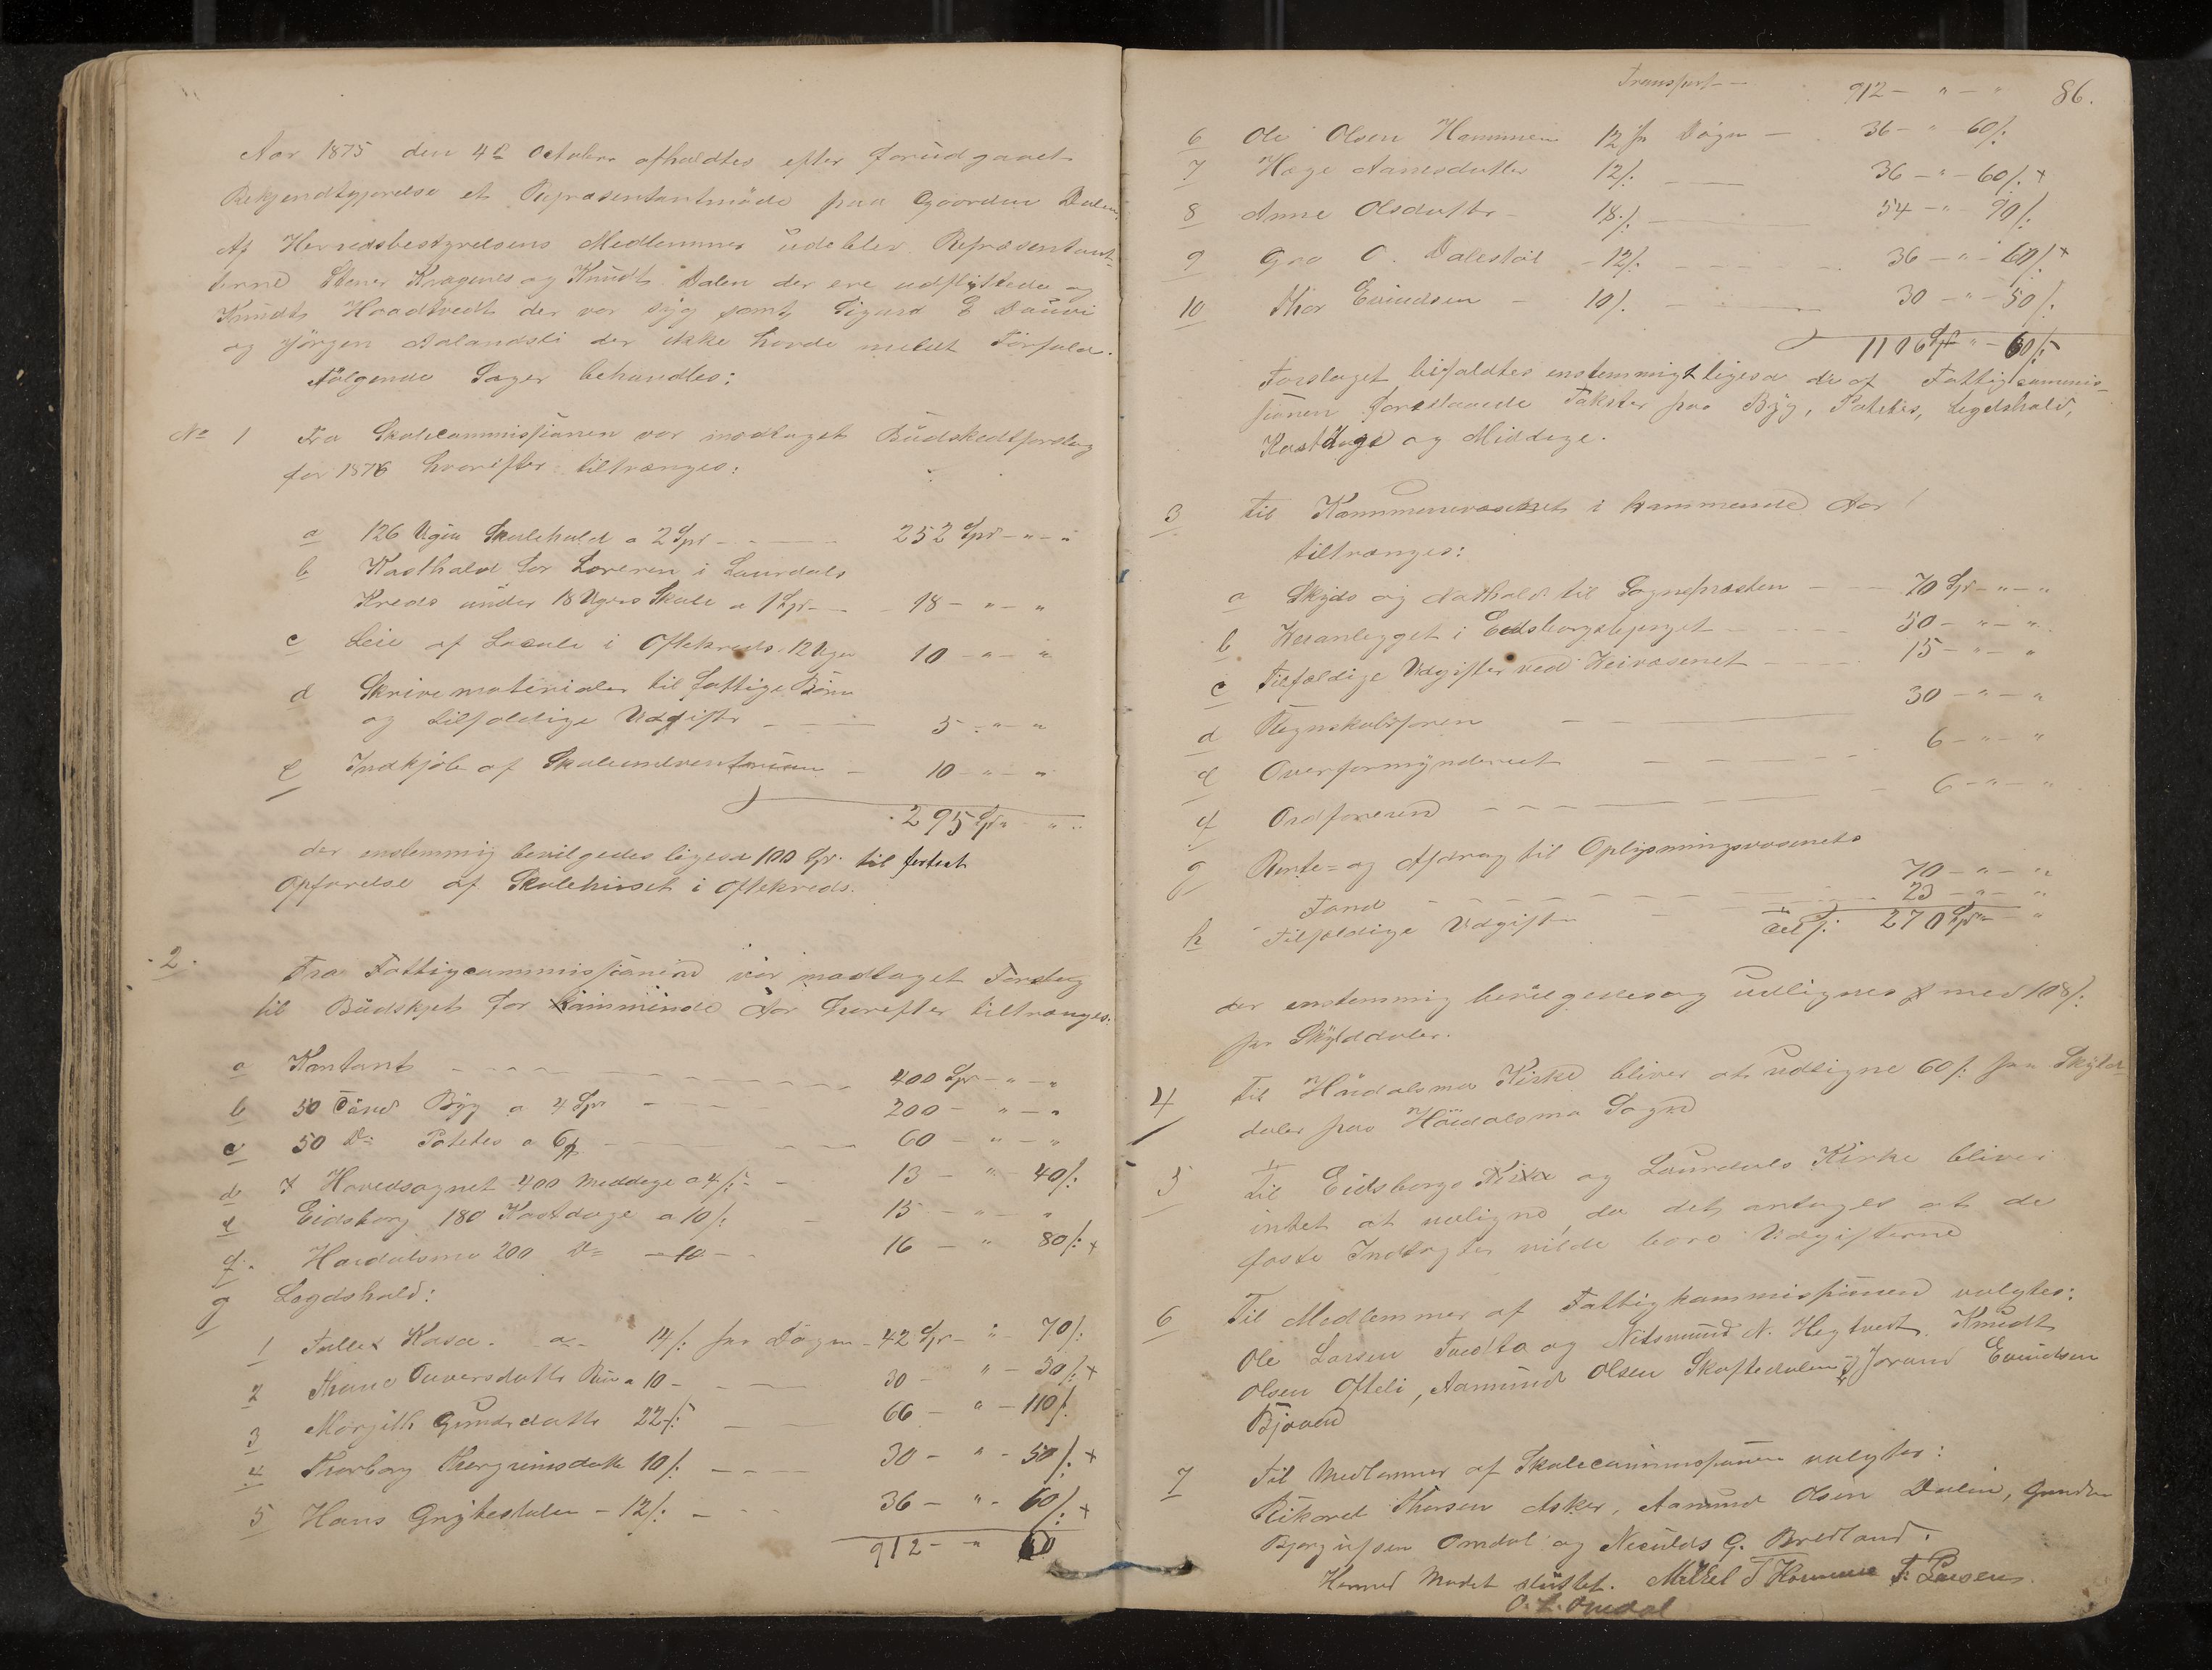 Aar 1875 den 4de October afholdtes efter forudgaaet
Bekjendtgjørelse et Repræsentantmøde paa Gaarden Dalen,
Af Herredsbestyrelsens Medlemmer udeblev Repræsentant-
terne Stener Kragenes og Knudt Dalen der ere udflyttede og
Knudt Haadtvedt der var syg samt Sigurd
og Jørgen Aalandsli der ikke havde meldt Forfald.
Følgende Sager behandles:
No 1 Fra Skolecommissionen var modtaget Budskedtforslag
for 1876 hvorefter tiltrænges:
a 126 Uger Skolehold a 2 Spd - - 252 Spd - " - "
b Kosthold for Læreren i Laurdals
Kreds under 18 Ugers Skole a 1 Spd - - 18 - " - "
c Leie af Locale i Oftekreds 12 Uger 10 - " - "
d Skrivematerialer til fattige Børn
og tilfældige Udgifter - - 5 - " - "
e Indkjøb af Skoleinventarium - 10 - " - "
295 Spd " "
der enstemmig bevilgedes ligesa 100 Spd. til fortsat
Opførelse af Skolehuset i Oftekreds.
2. Fra Fattigcommissionen var modtaget Forslag
til Budskjet for kommende Aar hvorefter tiltrænges:
a Kontant - - - 400 Spd - " - "
b 50 Tønd Byg a 4 Spd - - 200 - " - "
c 50 Do Potetes a 6 - - 60 - " - "
d I Hovedsognet 400 Meddage a 4 /: - 13 - " - 40 /:
e Eidsborg 180 Kostdage a 10 /: - 15 - " - "
f. Høidalsmo 200 Do - 10 - 16 - " 80 /: x
g Lægdshold:
1 Kasa . a - 14 /: pr Døgn - 42 Spd - " - 70 /:
2 a 10 - - 30 - " - 50 /: x
3 Margith Gundersdatter 22 /: - 66 - " - 110 /:
4 Thorborg Thorgrimsdatter 10 /: - - 30 - " - 50 /: x
5 Hans - 12 /: - 36 - " - 60 /: x
912 - " 60
Transport - 912 - " - " 86.
6 Ole Olsen Hommen 12 pr Døgn - 36 - " 60 /:
7 Hæge Aanesdatter 12 /: - 36 - " - 60 /: x
8 Anne Olsdatter - 18 /: - 54 - " 90 /:
9 Gro O. Dalestøil - 12 /: - - 36 - " - 60 /: x
10 Thor Evindsen - 10 /. - - 30 - " - 50 /:
1106 Spd " - 60 /:
Forslaget bifaldtes enstemmigt ligesa de af Fattigcommis-
sionen foreslaaede Takster paa Byg, Potetes, Legdshold,
Kostdage og Middage.
3 Til Kommunevæsenet i kommende Aar
tiltrænges:
a Skyds og Natholdt til Sognepræsten - - 70 Spd - " - "
b Veianlegget i - - 50 - " - "
c Tilfældige Udgifter ved Veivæsenet - - 15 - " - "
d Regnskabsføren - - 30 - " - "
e Overformynderiet - - 6 - " - "
f Ordføreren - - - 6 - " - "
g Rente= og Afdrag til Oplysningsvæsenets
Fond - - - 70 - " - "
h Tilfældige Udgifter - 23 - " - "
270 Spd - "
der enstemmig bevilgedes og udlignes med 108 /:
pr Skylddaler.
4 Til Høidalsmo Kirke bliver at udligne 60 /: pr Skyld-
daler paa Høidalsmo Sogn
5 Til Eidsborgs Kirke og Laurdals Kirke bliver
intet at udligne, da det antages at de
faste Indtægter vilde bære Udgifterne
6 Til Medlemmer af Fattigkommissionen valgtes:
Ole Larsen Tvedto og N. Hegtvedt, Knudt
Olsen Ofteli, Aamund Olsen Skaftedalen og Jorand Evindsen
7 Til Medlemmer af Skolecommissionen valgtes:
Rikard Thorsen Asker, Aamund Olsen Dalen, Gunder
Bjørgufsen Omdal og G. Bredland.
Hermed Mødet sluttet. Mikkel T Homme T. Larsen.
O. L. Omdal